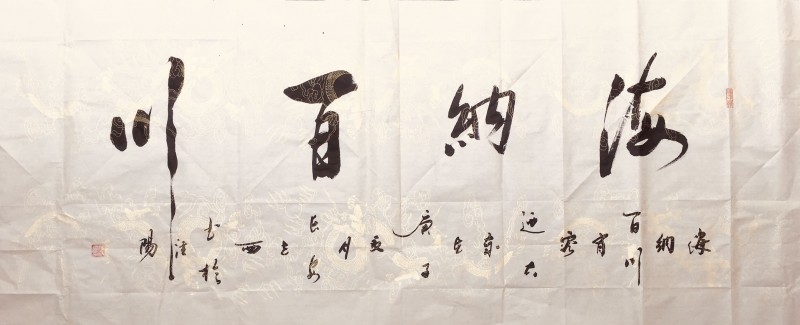 海納百川
海納百川有容迺大歲在庚子夏月長安西書於陽